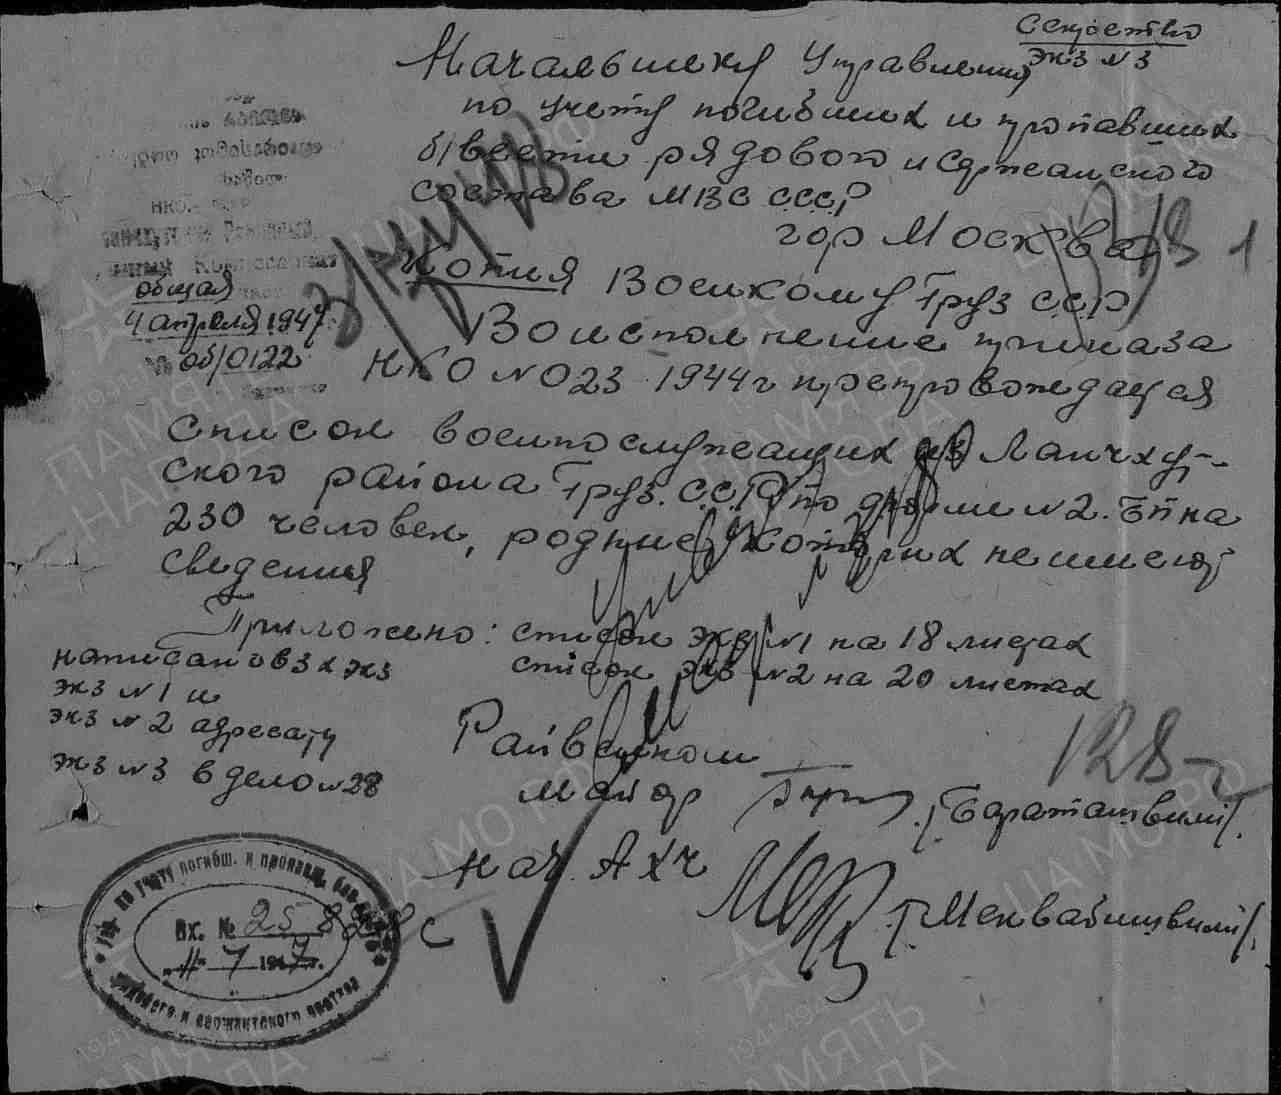 Секретно
экз N 3
Начальнику Управления
по учету погибших и пропавших
б/вести рядового и сержанского
состава МВС СССР
гор Москва
Копия Военкому Груз ССР
общая
4 апреля 1947
об/0122
Во исполнение приказа
НКО N 023 1944г препровождается
список военнослужащих из Ланчхут-
ского района Груз. ССР по форме N 2. Б/П на
230 человек, родные которых не имеют
сведения
Приложено: список экз N1 на 18 листах
список экз N2 на 20 листах
написан в 3х экз
экз N 1 и
экз N 2 адресату
экз N 3 в дело N 28
Райвоенком
майор /Бараташвили/.
128
нач. АХЧ /Меквабишвили/.
Упр. по учету погибш. и пропавш. без вести
рядового и сержантского состава
Вх. № 25 с
"11" 7 1947г.
ПАМЯТЬ
НАРОДА
ЦАМО РФ
1941-1945